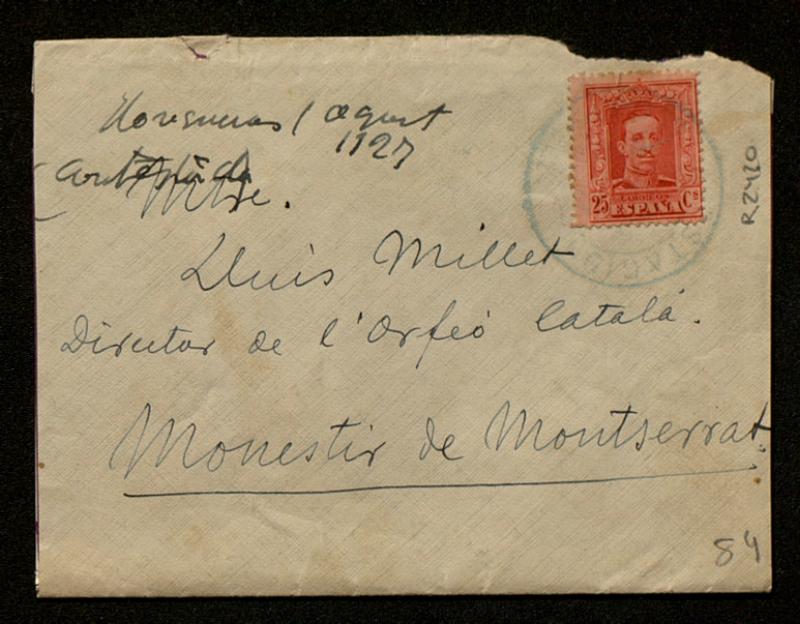 agost
1927
Mtre.
Lluis Millet
Director de l'Orfeó Catalá.
Monestir de Montserrat.
CORREOS
25 ESPAÑA Cs
R2420
84